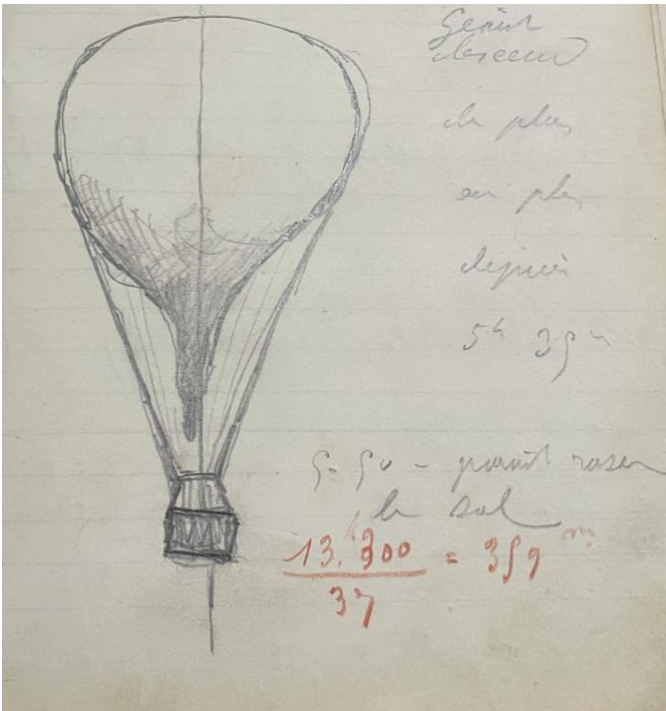 Géant
descend
de plus
en plus
depuis
5h 35m
5h 50 - paraît raser
le sol
13.300 = 359 m
37